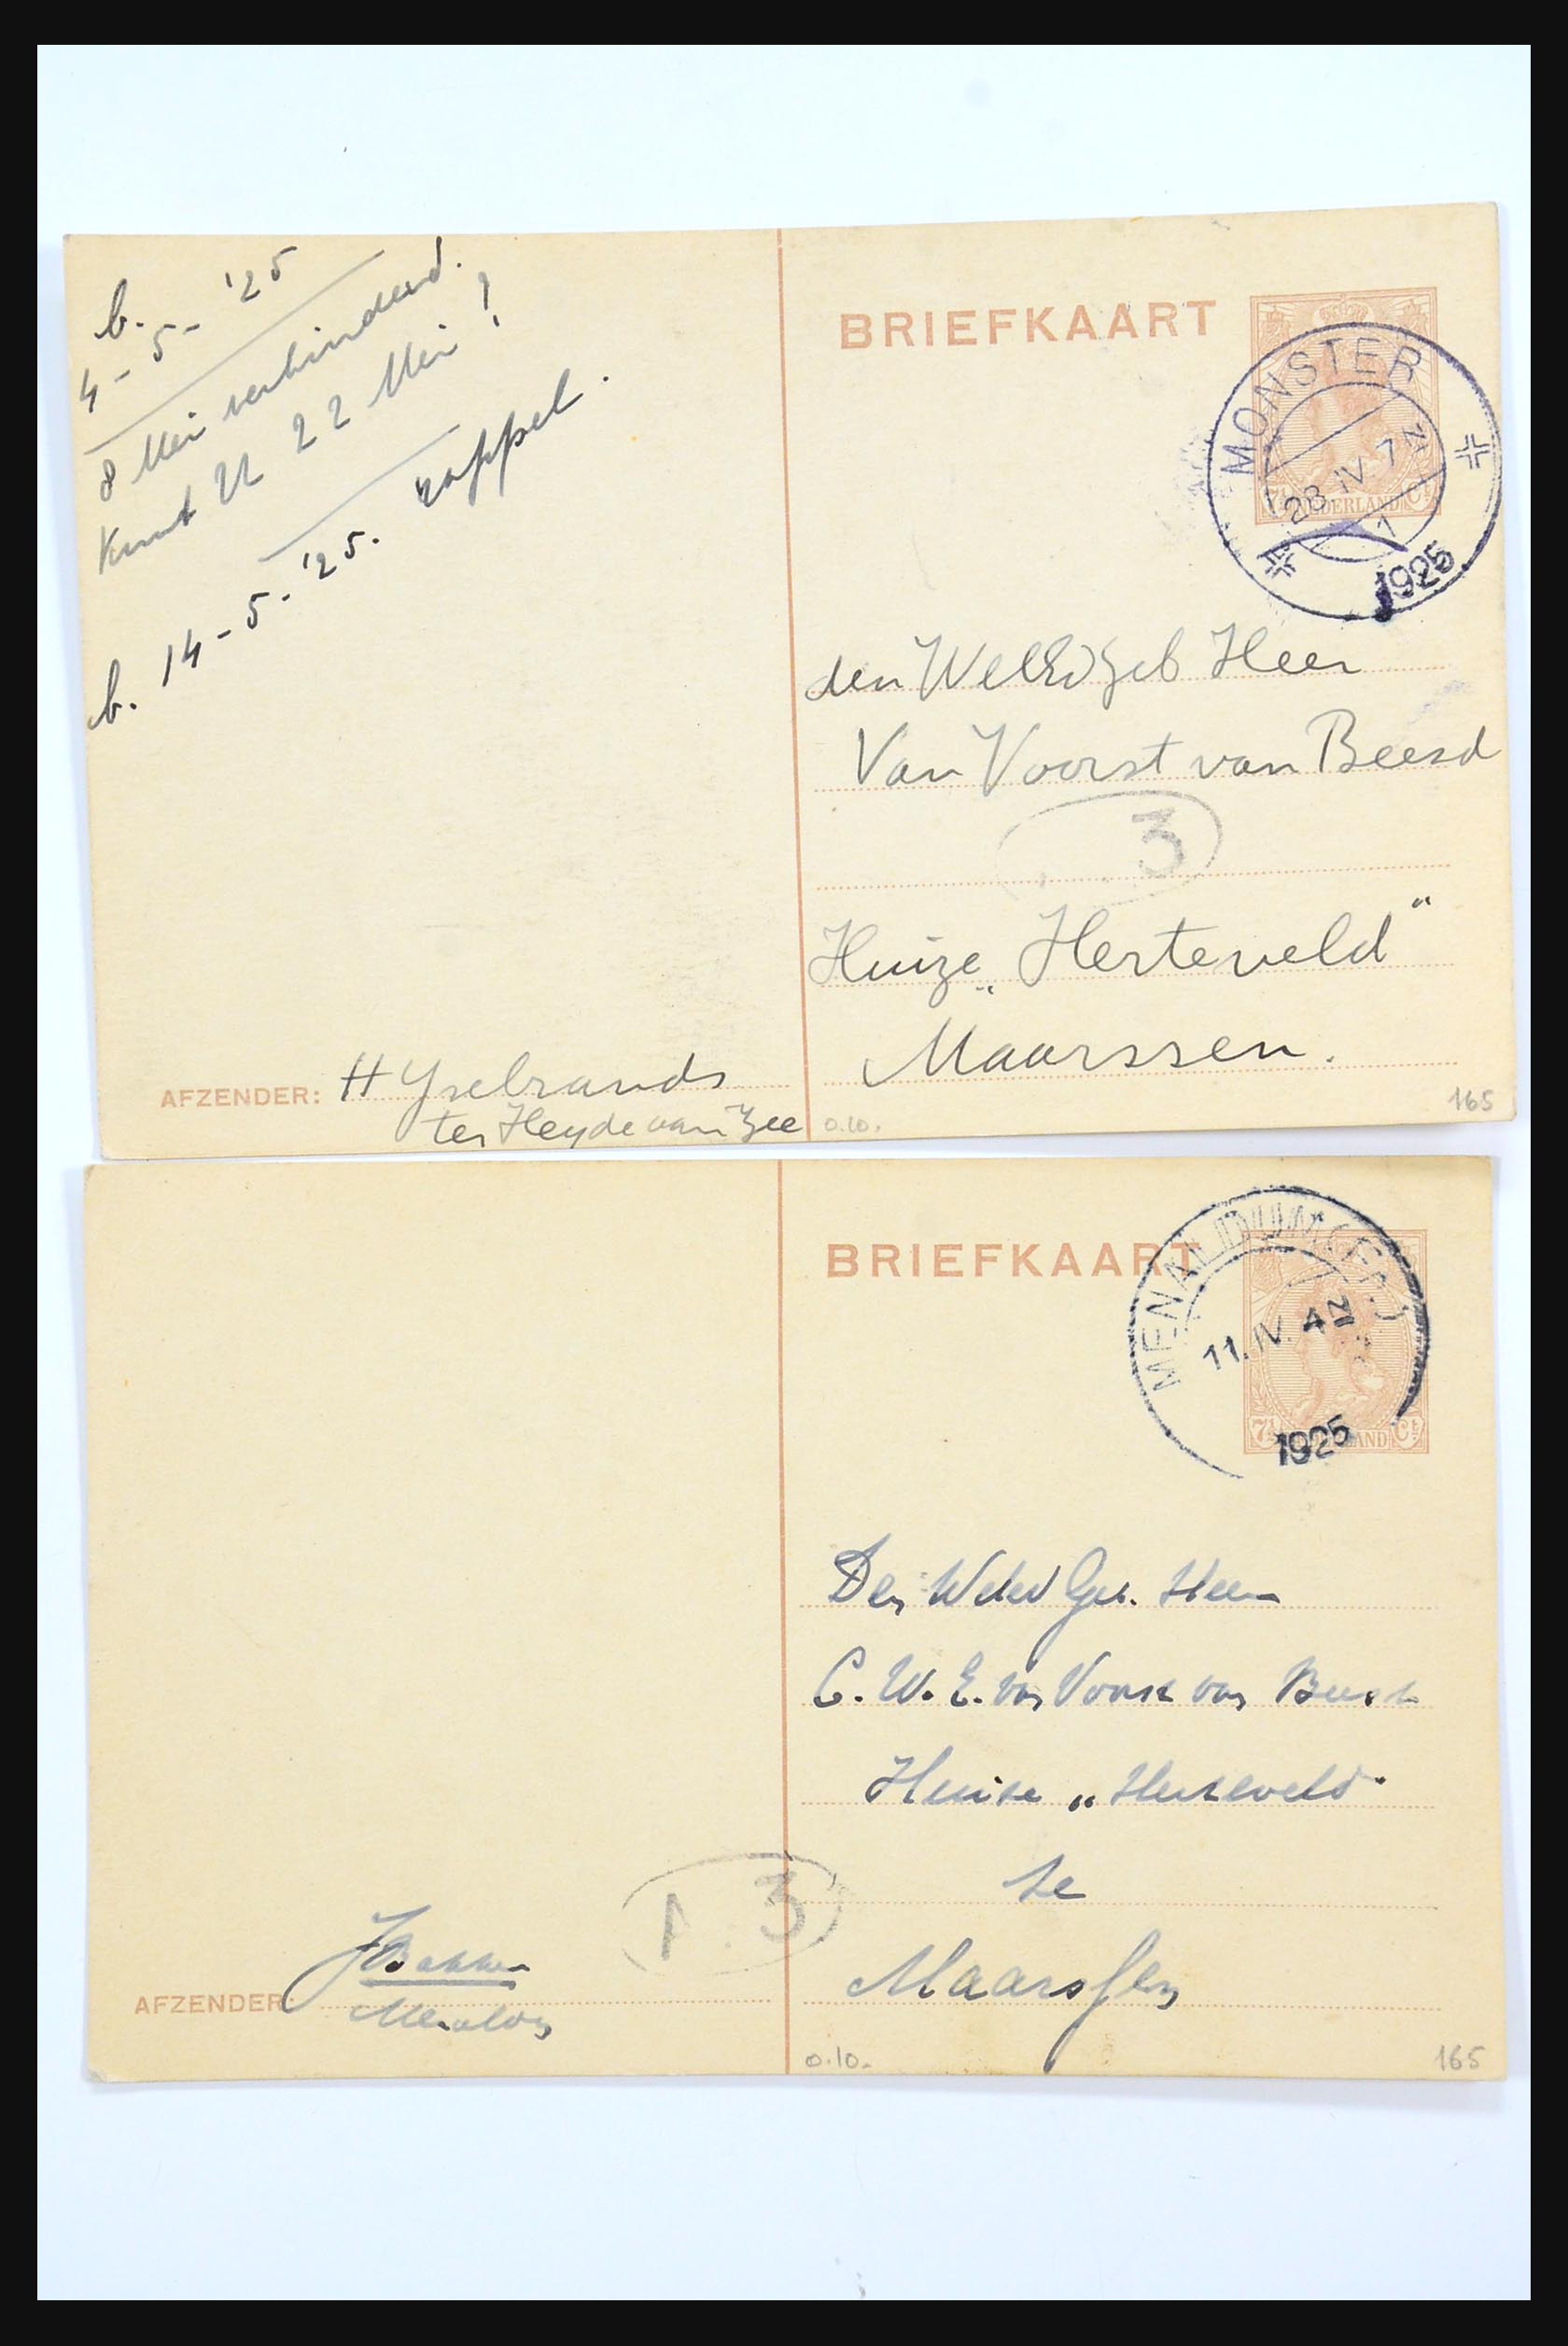 b.
4-5-'25
8 Mei verhinderd.
Kunt U 22 Mei?
b. 14-5-'25. rappel.
BRIEFKAART
MONSTER
28 IV 7 N
1
1925
7½ NEDERLAND Ct
den WelEdGeb Heer
Van Voorst van Beesd
3
Huize „Herteveld"
Maarssen.
AFZENDER: H Ysebrands
ter Heyde aan Zee
0.10.
165
BRIEFKAART
MENALDUM (FR.)
11.IV. 4 N
1925
7½ NEDERLAND Ct
Den WelEd Geb. Heer
C. W. E. van Voorst van Beesd
Huize „Herteveld"
te
Maarssen
1 3
J Bakker
AFZENDER:
0.10.
165